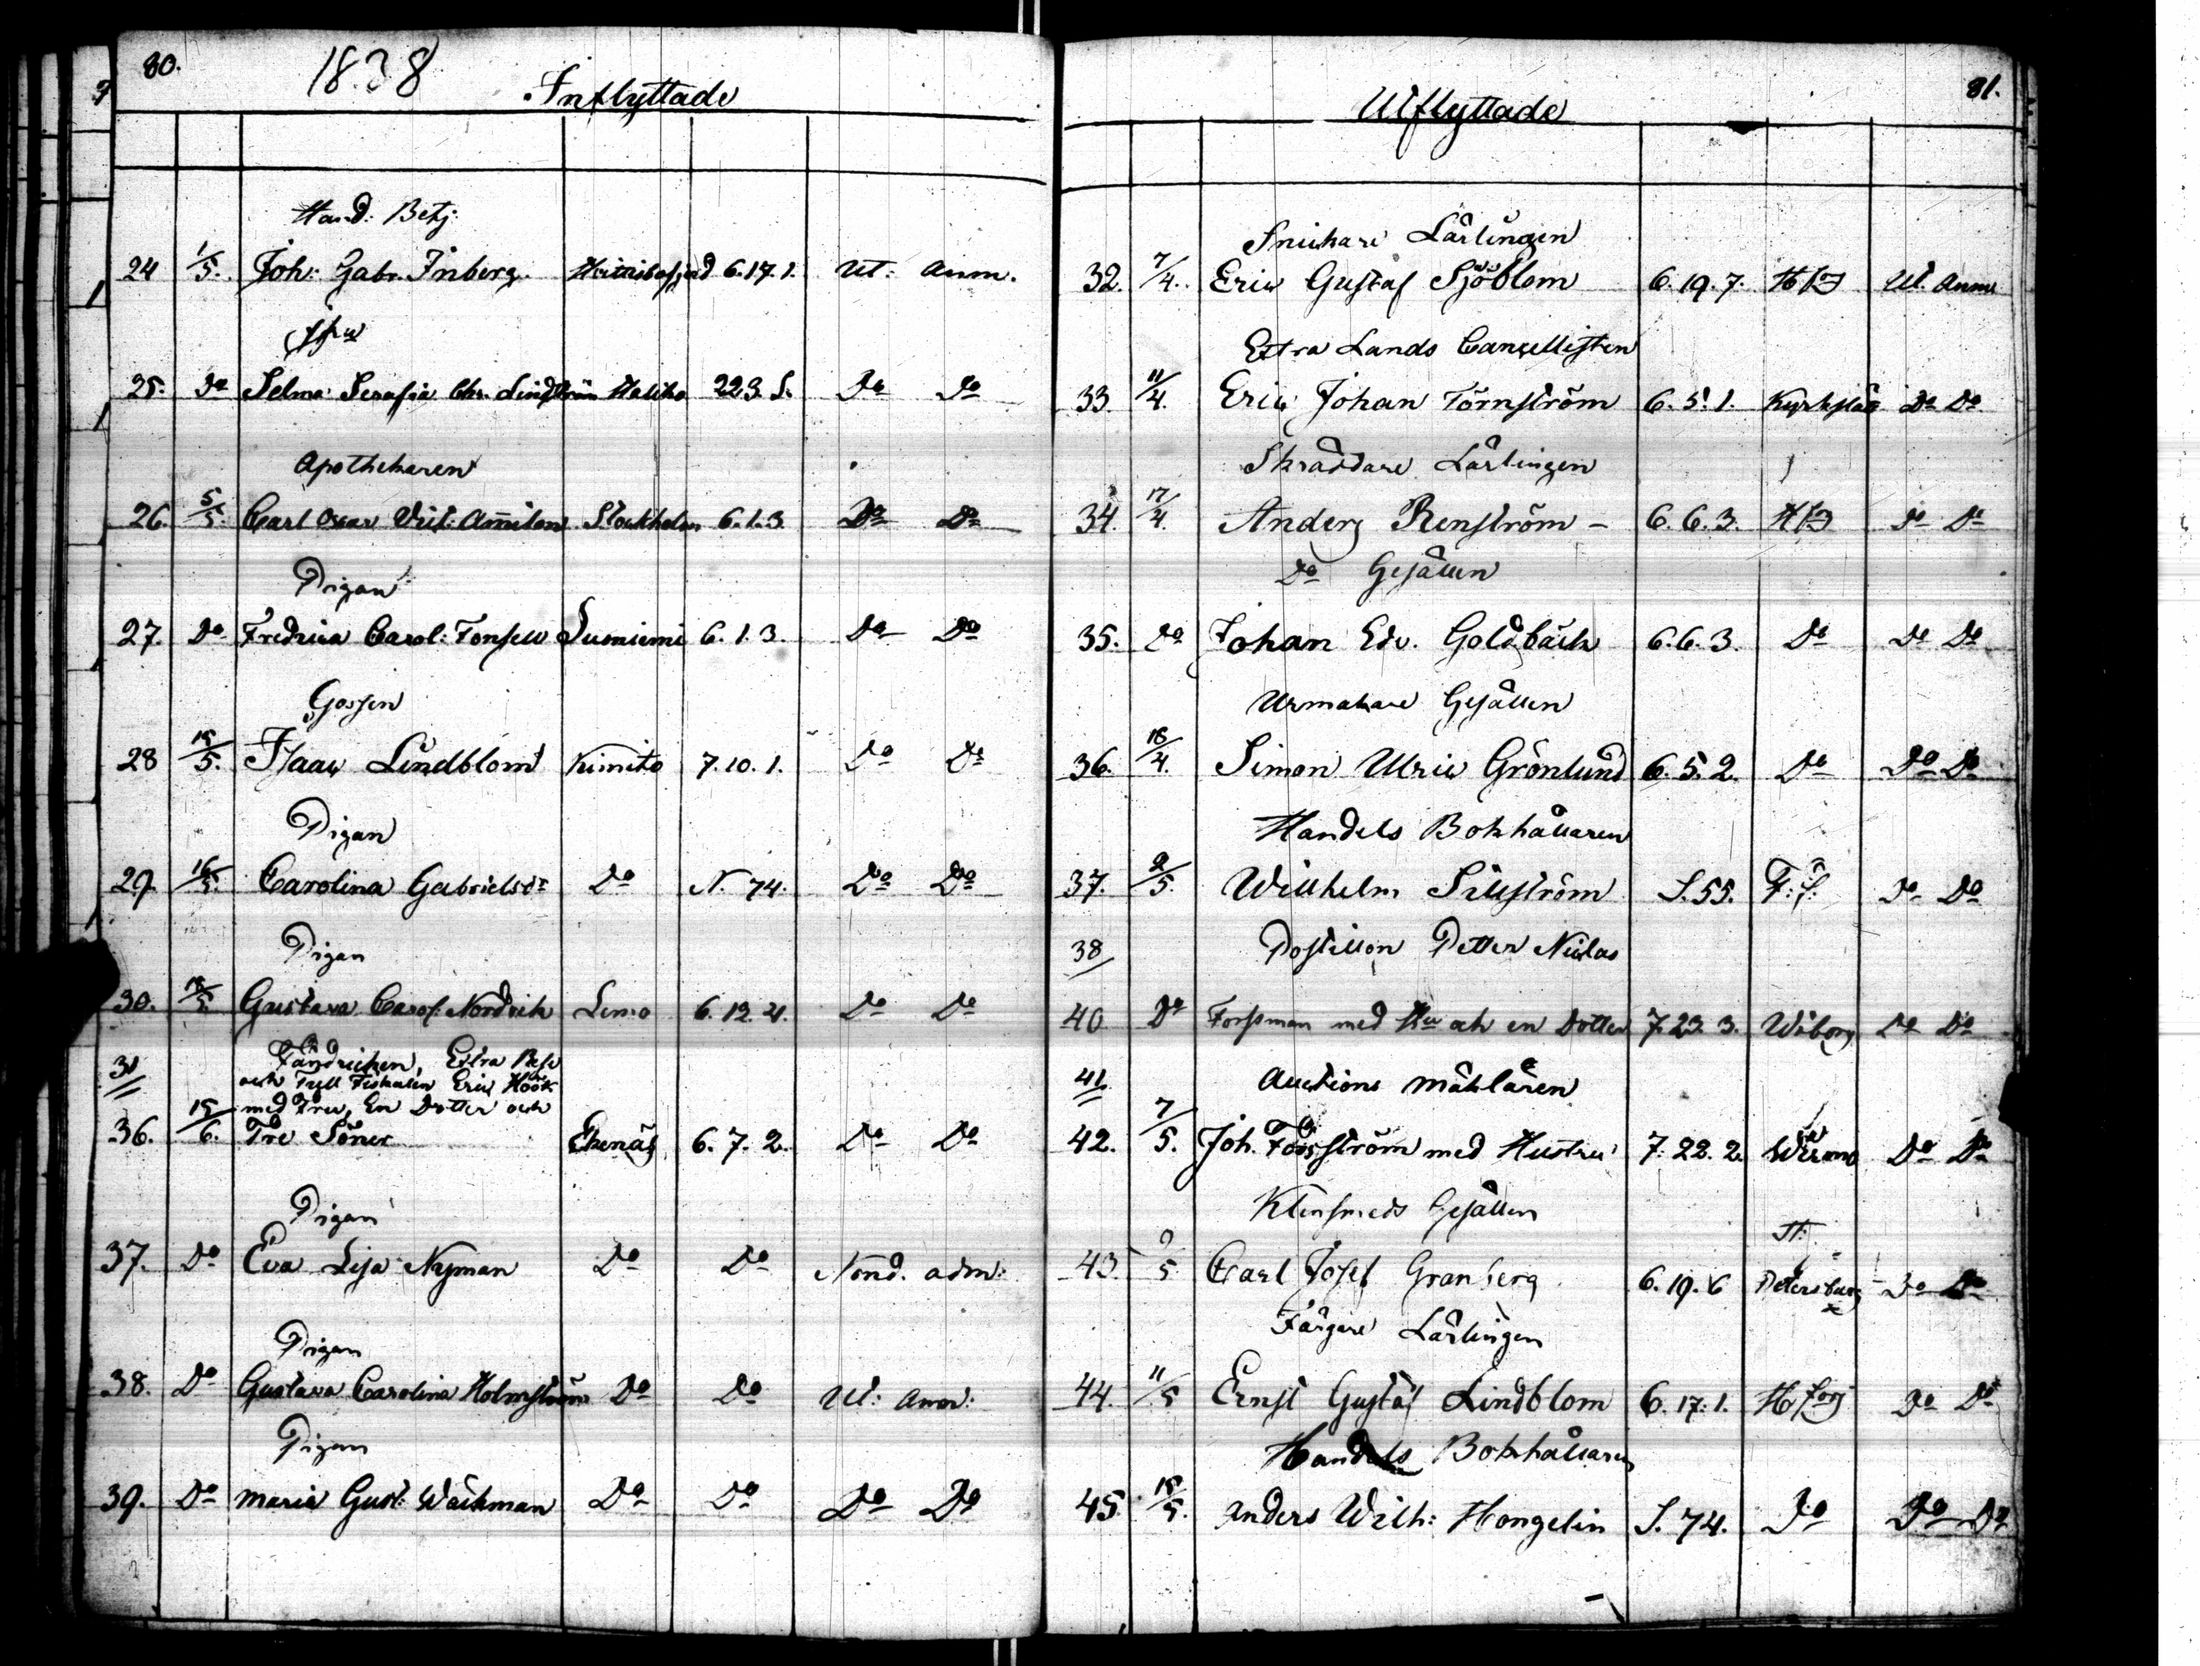 80.
1838
Inflyttade
Hand: Betj:
24 1/5. Joh: Gabr. Inberg. 6.17.1. Ut: anm.
Jfru
25. Do Selma Serafia Chr. Lindström Haliko 223 S. Do Do
Apothekaren
26. 5/5. Carl Oscar Stockholm 6.1.3. Do Do
Pigan
27. Do Fredrica Carol: Fonsell Sumiemi 6.1.3. Do Do
Gossen
28 15/5. Isaac Lindblom Kimito 7.10.1. Do Do
Pigan
29. 16/5. Carolina Gabrielsdr Do N. 74. Do Do
Pigan
30. 18/5. Gustava Carol. Nordvik Lemo 6.12.4. Do Do
31 Fändricken, Extra
och Fiskalen Eric Höök
med Fru, En Dotter och
36. 15/6. Tre Söner Ekenäs 6.7.2. Do Do
Pigan
37. Do Eva Lisa Nyman Do Do Nönd. adm:
Pigan
38. Do Gustava Carolina Holmström Do Do Ut: Anm:
Pigan
39. Do Maria Gust: Wäckman Do Do Do Do
81.
Utflyttade
Snickare Lärlingen
32. 7/4. Eric Gustaf Sjöblom 6.19.7. Hfors Ut. Anm
Extra Lands Cancellisten
33. 11/4. Eric Johan Törnström 6.5.1. Kyrkslätt Do Do
Skräddare Lärlingen
34. 17/4. Anders Renström – 6.6.3. Hfors Do Do
Do Gesällen
35. Do Johan Edv. Goldbäck 6.6.3. Do Do Do
Urmakare Gesällen
36. 18/4. Simon Ulric Grönlund 6.5.2. Do Do Do
Handels Bokhållaren
37. 2/5. Willhelm Sillström S.55. F:S: Do Do
38 Postillon Petter Niclas
40 Do Forssman med Hu och en Dotter 7.23.3. Wiborg Do Do
41. Auctions Mäklaren
42. 7/5. Joh. Forsström med Hustru 7.22.2. Wirmo Do Do
Klensmeds Gesällen
43. 9/5 Carl Josef Granberg 6.19.6 St: Petersburg Do Do
Färgare Lärlingen
44. 11/5 Ernst Gustaf Lindblom 6.17.1. Hfors Do Do
Handels Bokhållaren
45. 15/5. Anders Wilh: Hongelin S. 74. Do Do Do